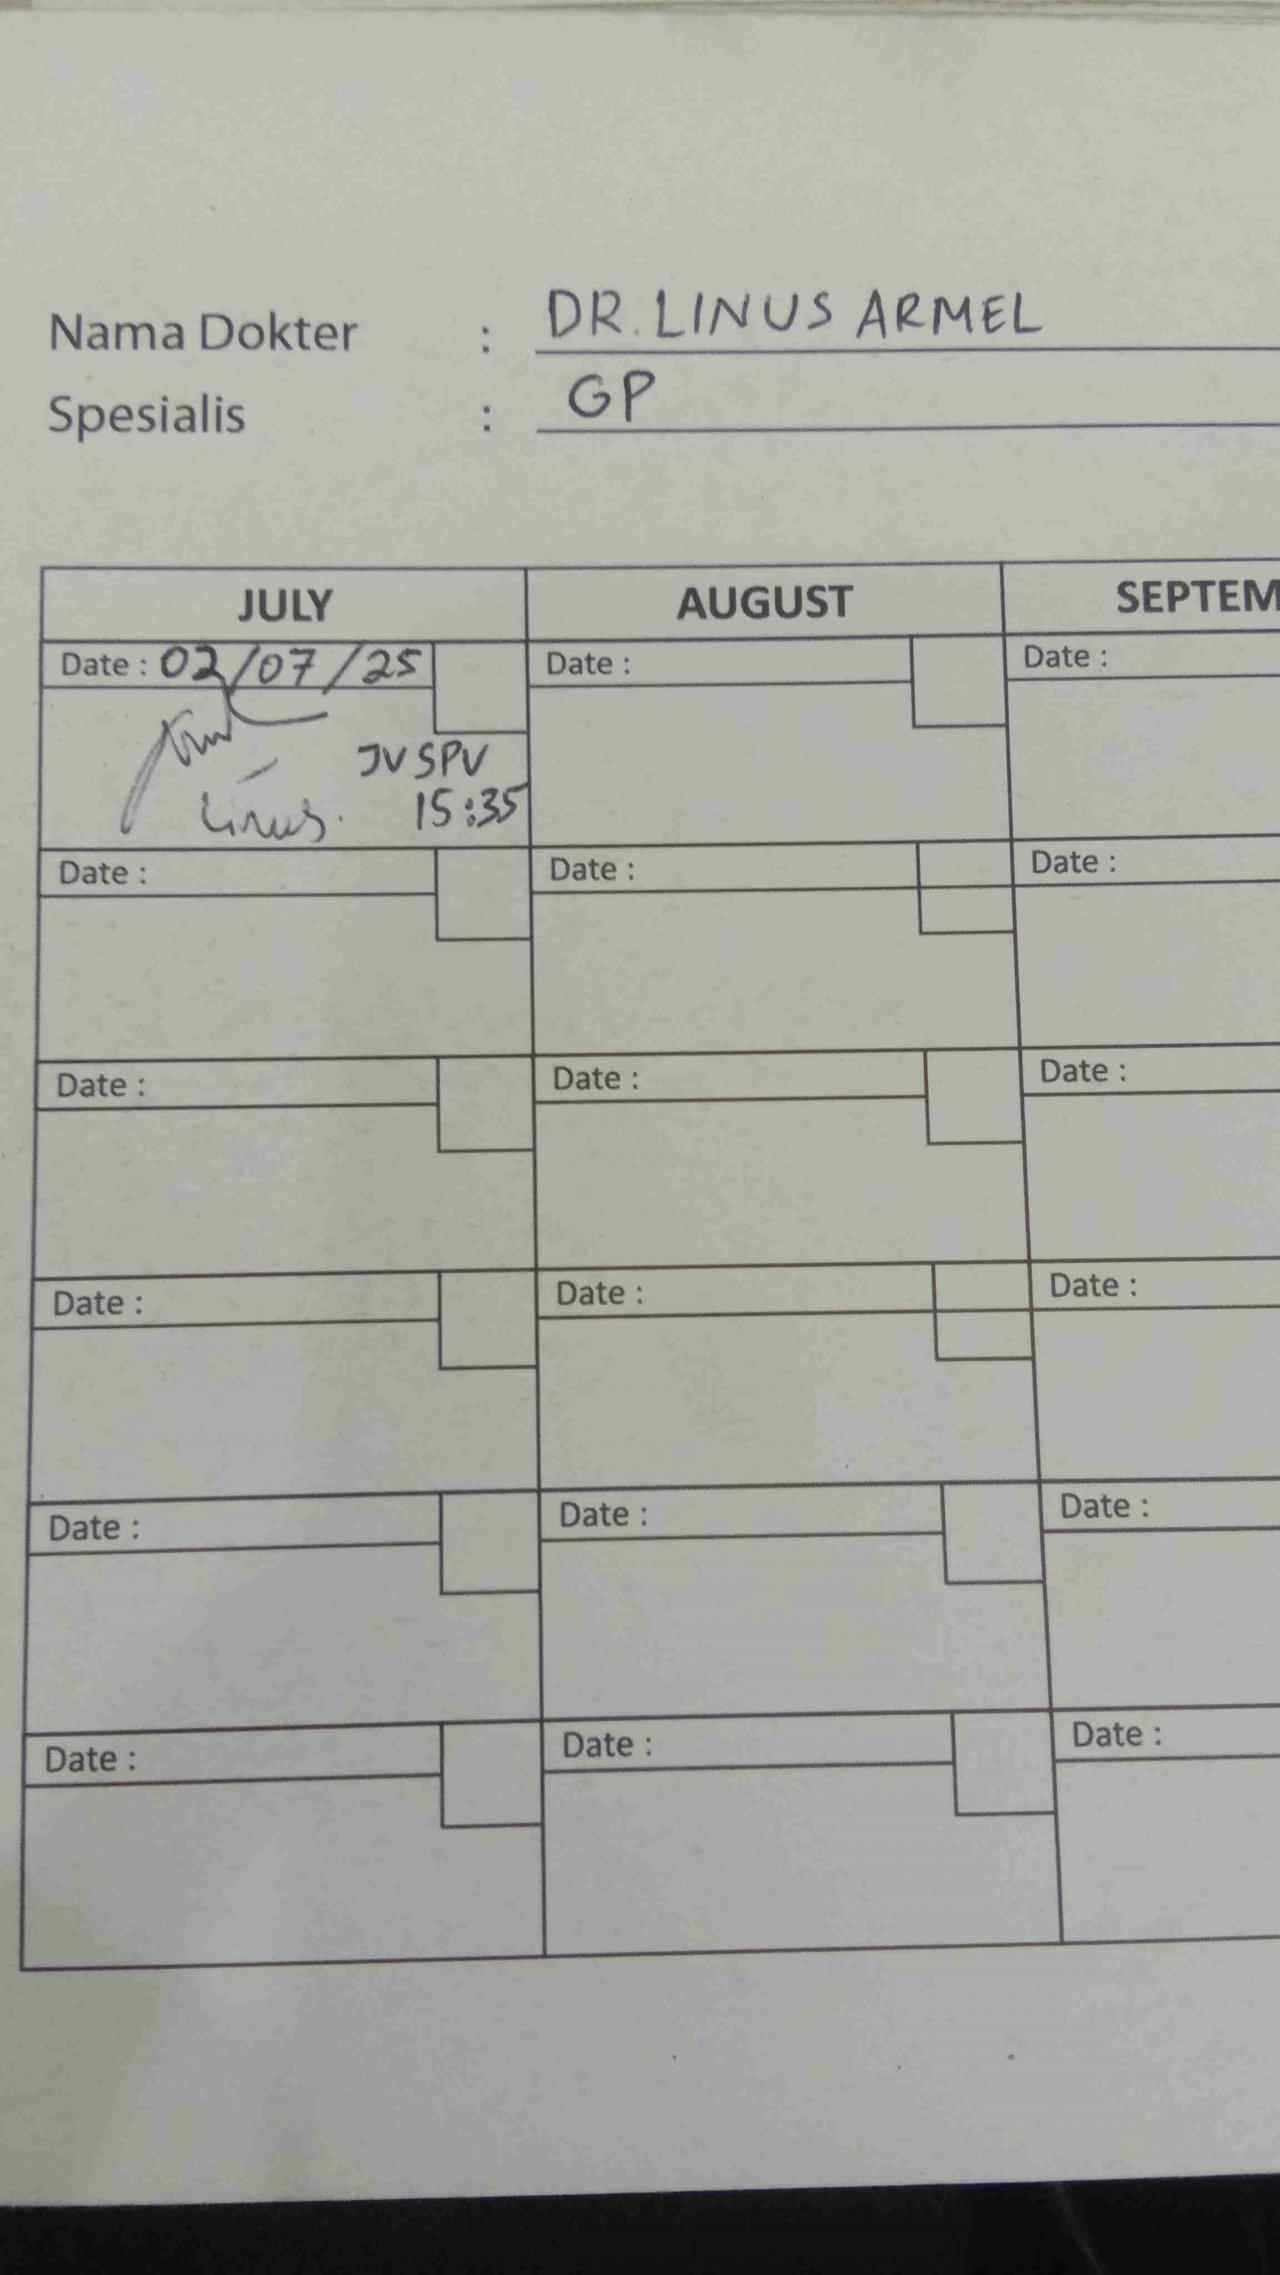 Nama Dokter : DR. LINUS ARMEL
Spesialis : GP
JULY AUGUST SEPTEM
Date : 02/07/25 Date : Date :
JV SPV
Linus. 15:35
Date : Date : Date :
Date : Date : Date :
Date : Date : Date :
Date : Date : Date :
Date : Date : Date :